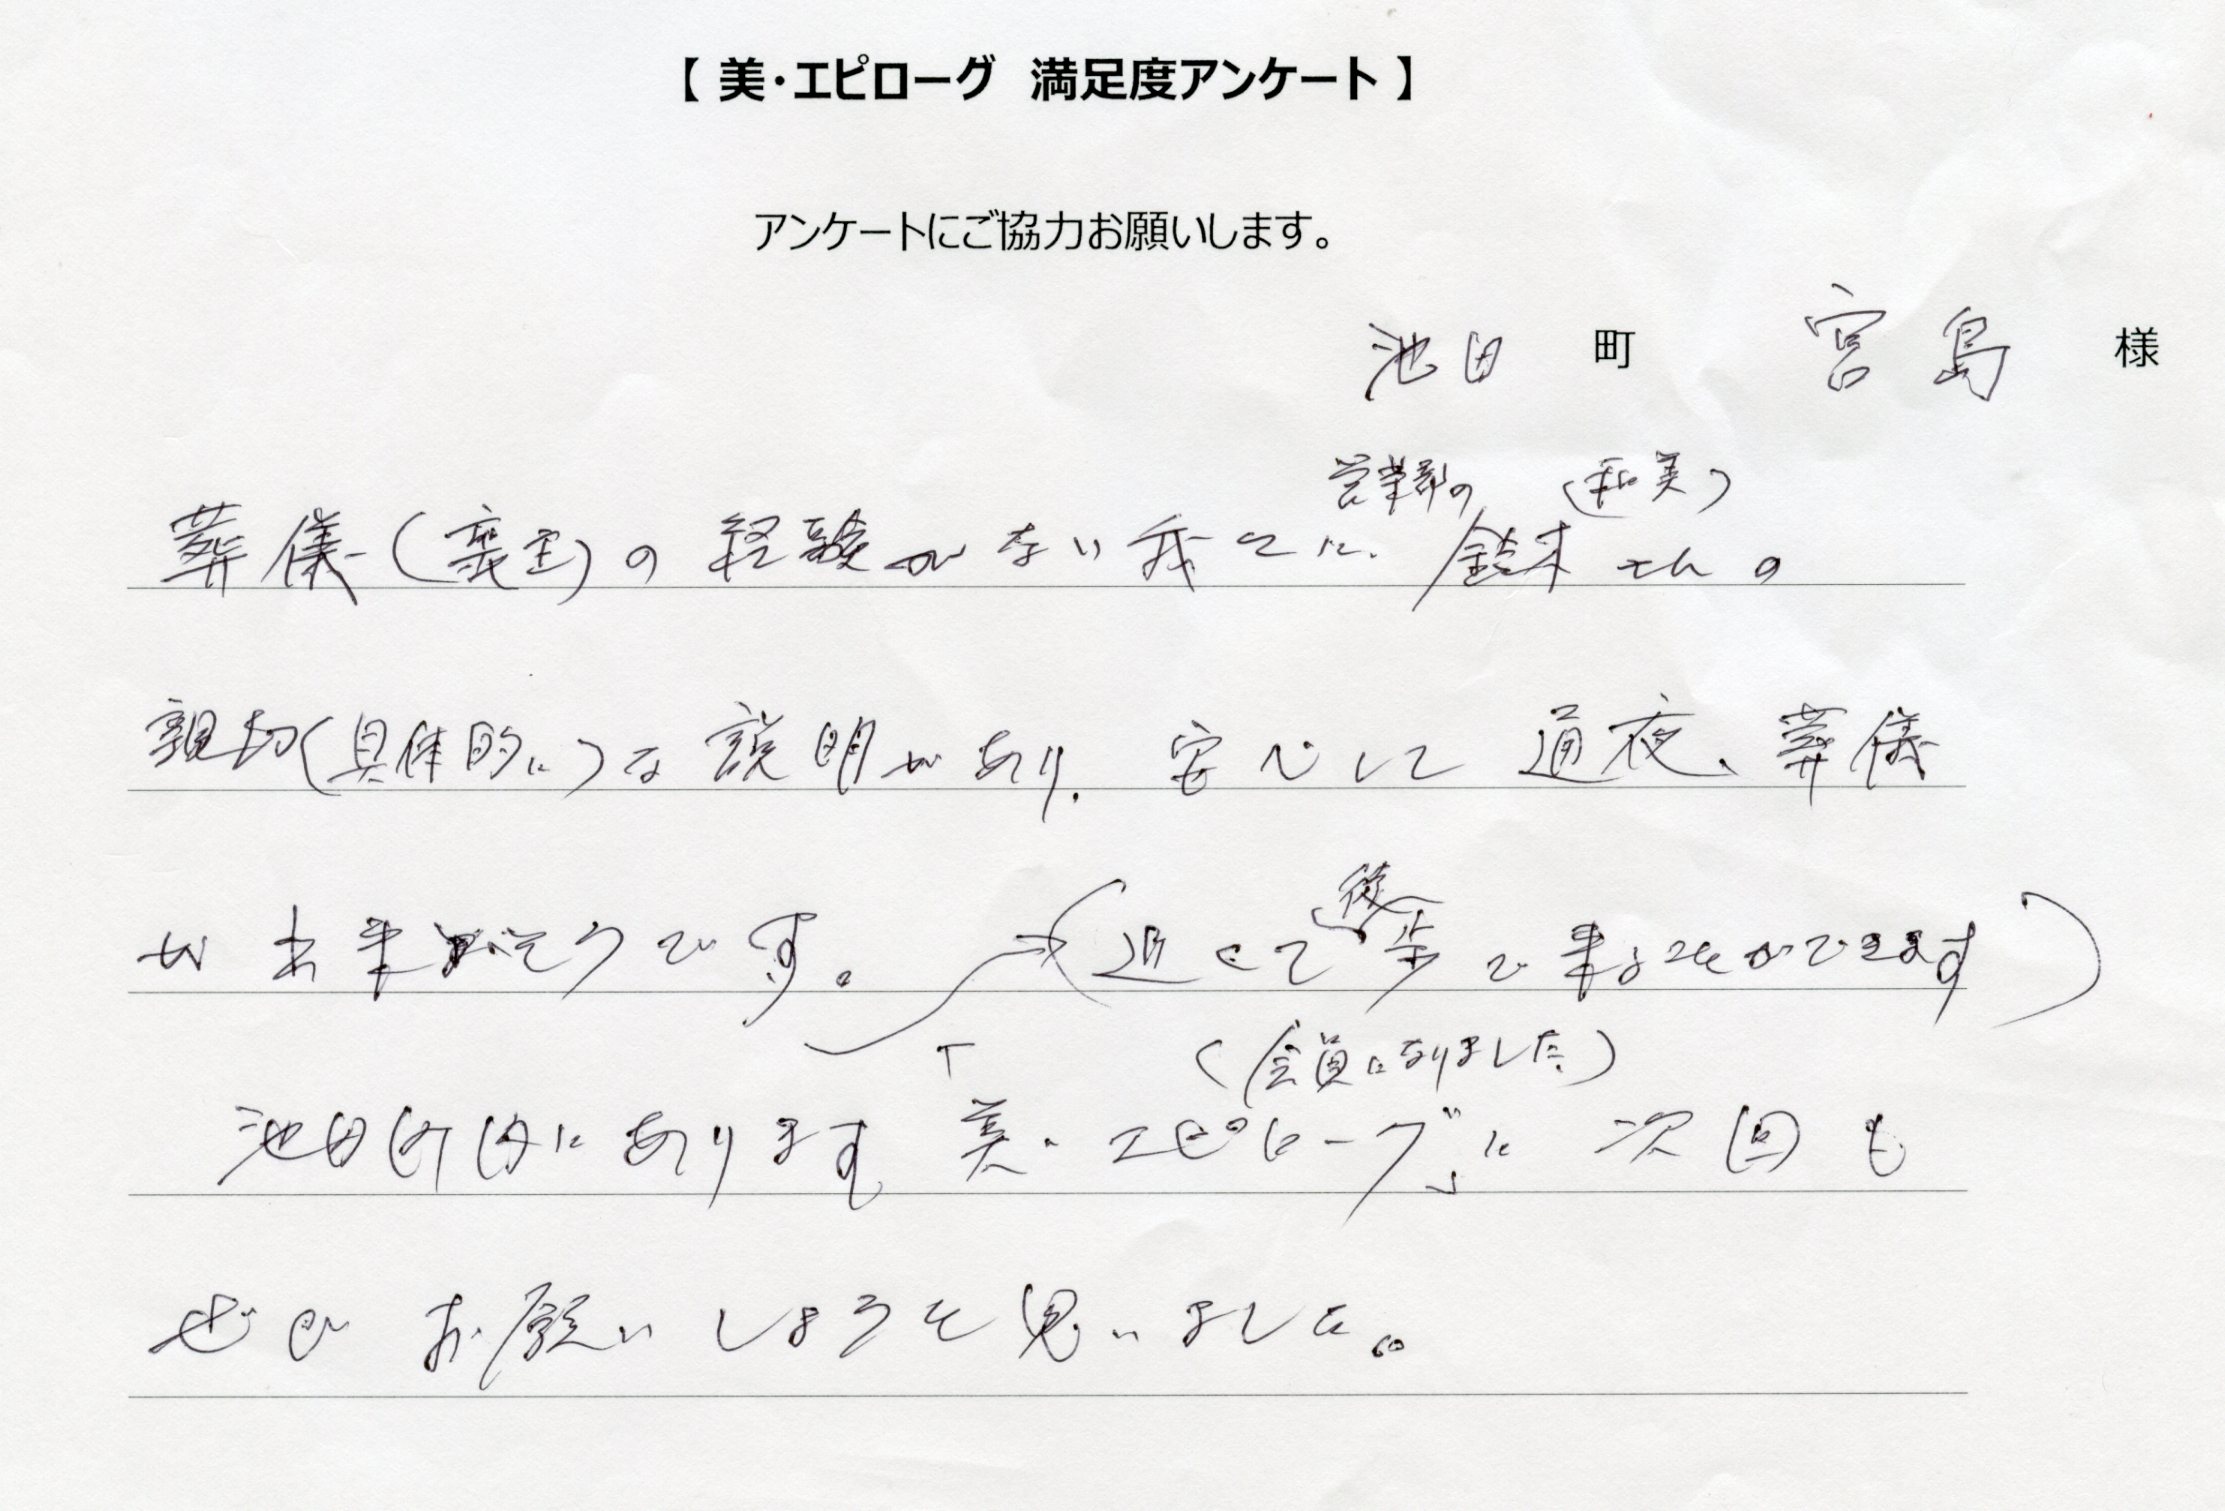 【 美・エピローグ 満足度アンケート 】
アンケートにご協力お願いします。
池田 町 宮島 様
営業部の (和美)
葬儀(喪主)の経験がない我々に、鈴木さんの
親切(具体的に)な説明があり、安心して通夜、葬儀
が出来そうです。(近くて徒歩で来ることができます)
(会員になりました)
池田町内にあります「美・エピローグ」に次回も
ぜひお願いしようと思いました。